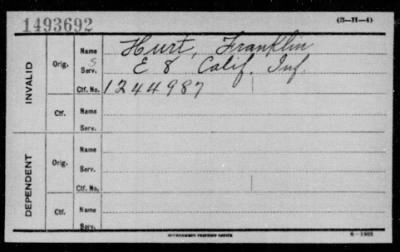 1493692
(3-H-4)
INVALID
Orig.
Name Hurt, Franklin
S
Serv. E 8 Calif. Inf.
Ctf. No. 1244987
Ctf.
Name
Serv.
DEPENDENT
Orig.
Name
Serv.
Ctf. No.
Ctf.
Name
Serv.
GOVERNMENT PRINTING OFFICE